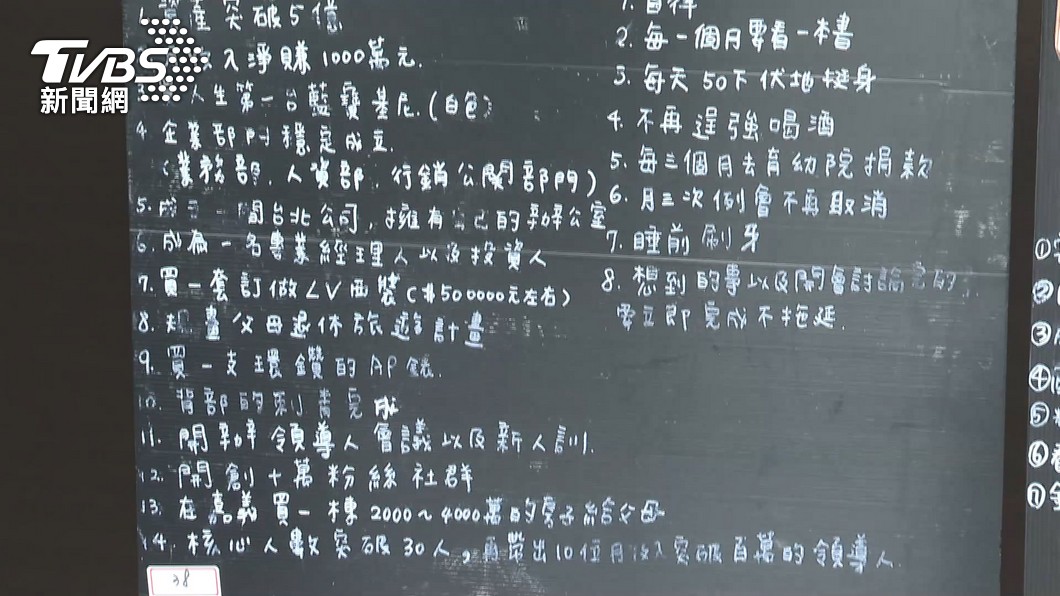 TVBS
新聞網
1. 資產突破5億
入淨賺1000萬元.
人生第一台藍寶基尼.(白色)
4. 企業部門穩定成立.
(業務部、人資部、行銷公關部門)
5. 成立一間台北公司,擁有自己的辦公室
6. 成為一名專業經理人以及投資人
7. 買一套訂做LV西裝(#500000元左右)
8. 規畫父母退休旅遊計畫
9. 買一支環鑽的AP錶.
10. 背部的刺青完成
11. 開辦領導人會議以及新人訓.
12. 開創十萬粉絲社群
13. 在嘉義買一棟2000~4000萬的房子給父母
14. 核心人數突破30人,再帶出10位月收入突破百萬的領導人.
38
1. 自律
2. 每一個月要看一本書
3. 每天50下伏地挺身
4. 不再逞強喝酒
5. 每三個月去育幼院捐款
6. 月三次例會不再取消
7. 睡前刷牙
8. 想到的事以及開會討論完的,
要立即完成不拖延.
①
②
③
④
⑤
⑥
⑦